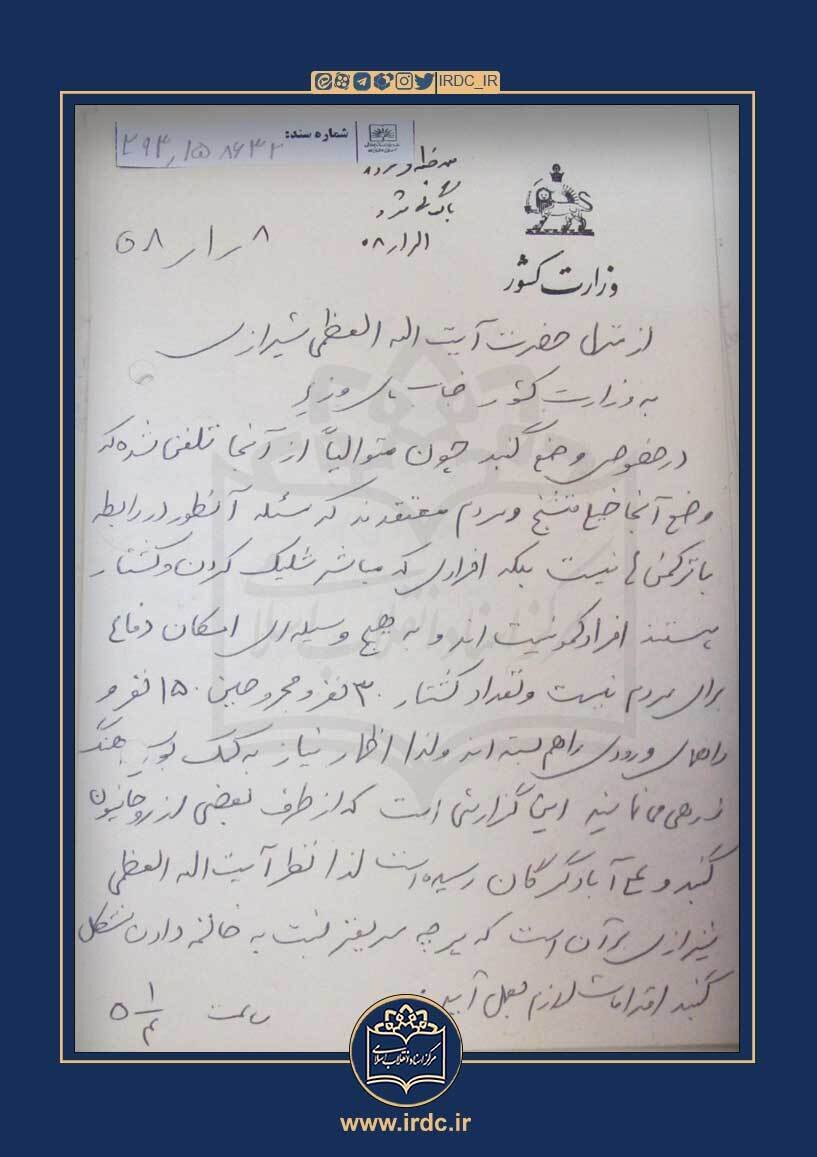 IRDC_IR
شماره سند:
۲۹۳,۱۵۸۶۳۲
بایگانی شود
۵۸ / ۱ / ۸
وزارت کشور
از منزل حضرت آیت اله العظمی شیرازی
به وزارت کشور جناب آقای وزیر
در خصوص وضع گنبد چون متوالیاً از آنجا تلفن شده که
وضع آنجا خیلی متشنج و مردم معتقدند که مسئله آنطور در رابطه
با ترکمن ها نیست بلکه افرادی که مباشر شلیک کردن و کشتار
هستند افراد کمونیست اند و به هیچ وسیله ای امکان دفاع
برای مردم نیست و تعداد کشتار ۳۰ نفر و مجروحین ۱۵۰ نفر و
راههای ورودی را هم بسته اند ولذا اظهار نیاز به کمک
زرهی می نمایند این گزارشی است که از طرف بعضی از روحانیون
گنبد و علی آباد گرگان رسیده است لذا نظر آیت اله العظمی
شیرازی بر آن است که هر چه سریعتر نسبت به خاتمه دادن مشکل
گنبد اقدامات لازم بعمل آید.
ساعت ۵ ۱/۴
مرکز اسناد انقلاب اسلامی
www.irdc.ir